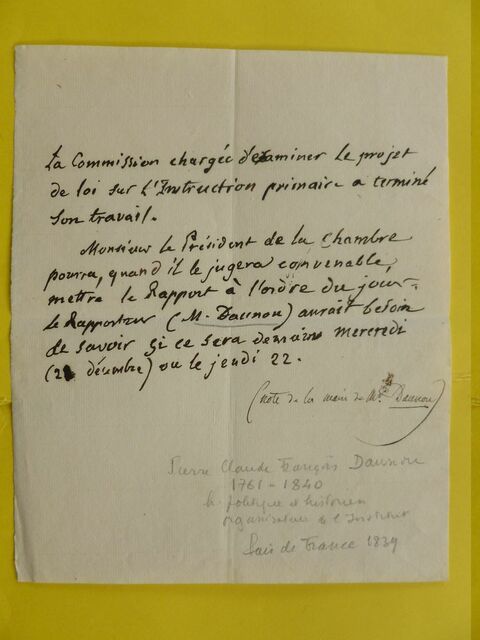 La Commission chargée d'examiner le projet
de loi sur l'Instruction primaire a terminé
son travail.
Monsieur le Président de la Chambre
pourra, quand il le jugera convenable,
mettre le Rapport à l'ordre du jour.
Le Rapporteur (M. Daunou) aurait besoin
de savoir si ce sera demain mercredi
(21 décembre) ou le jeudi 22.
(note de la main de Mr. Daunou)
Pierre Claude François Daunou
1761-1840
h. politique et historien
organisateur de l'Institut
Pair de France 1839